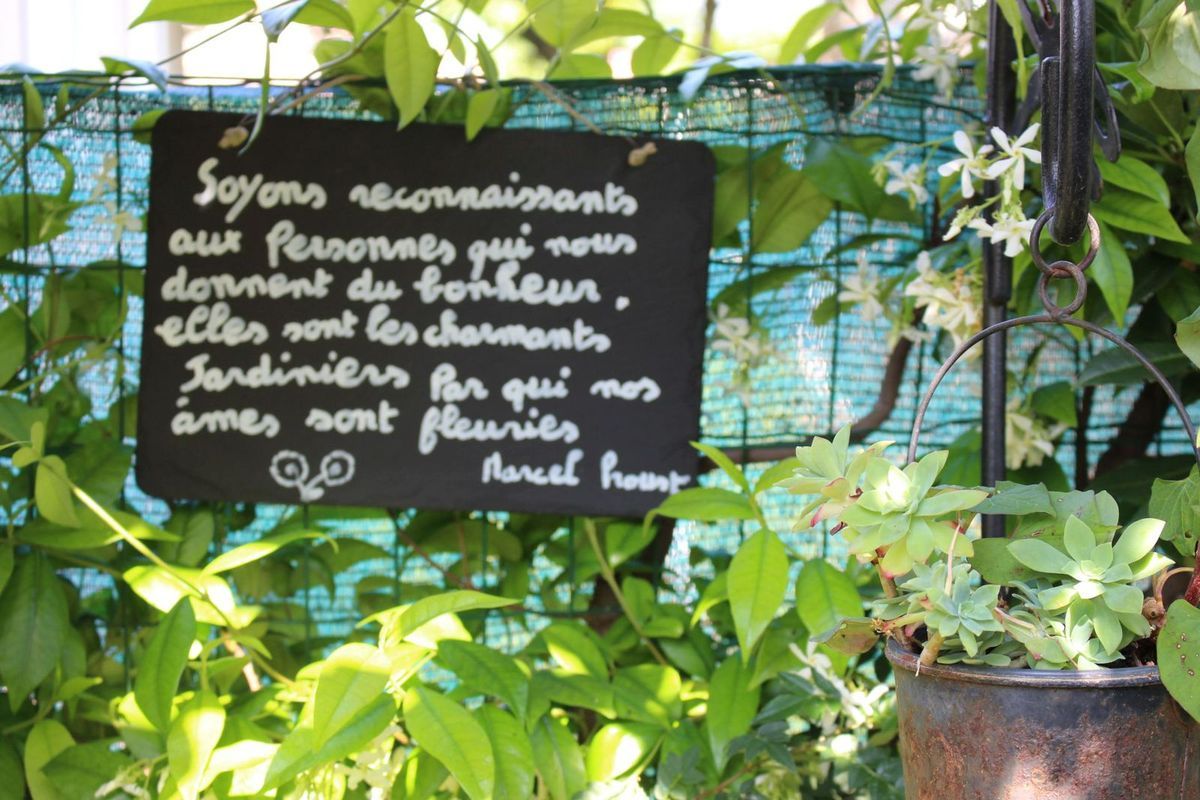 Soyons reconnaissants
aux Personnes qui nous
donnent du bonheur,
elles sont les charmants
Jardiniers Par qui nos
âmes sont fleuries
Marcel Proust